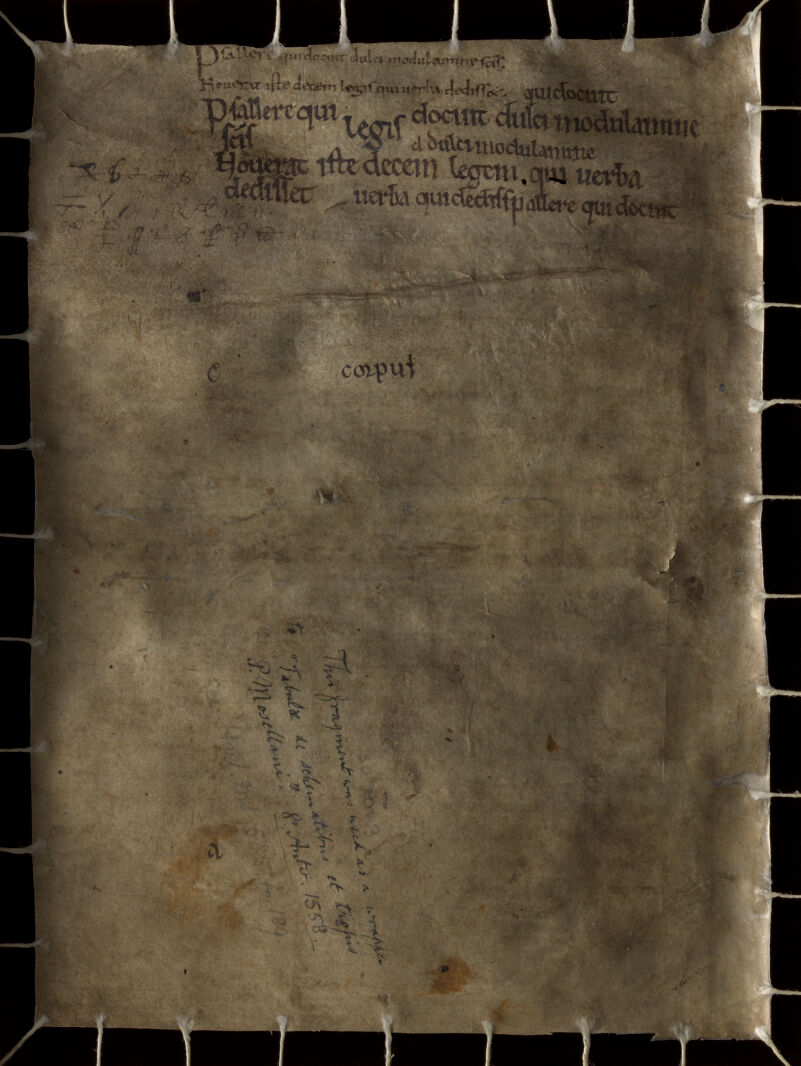 Psallere qui docuit dulci modulamine scis
Nouerat iste decem legis qui uerba dedisset qui docuit
Psallere qui legis docuit dulci modulamine
scis d dulci modulamine
Nouerat iste decem legem. qui uerba
dedisset uerba qui dedissp allere qui docuit
corpus
This fragment was used as a wrapper
to "Tabulæ de schematibus et tropis
P. Mosellani" 8º Antv. 1558.
a